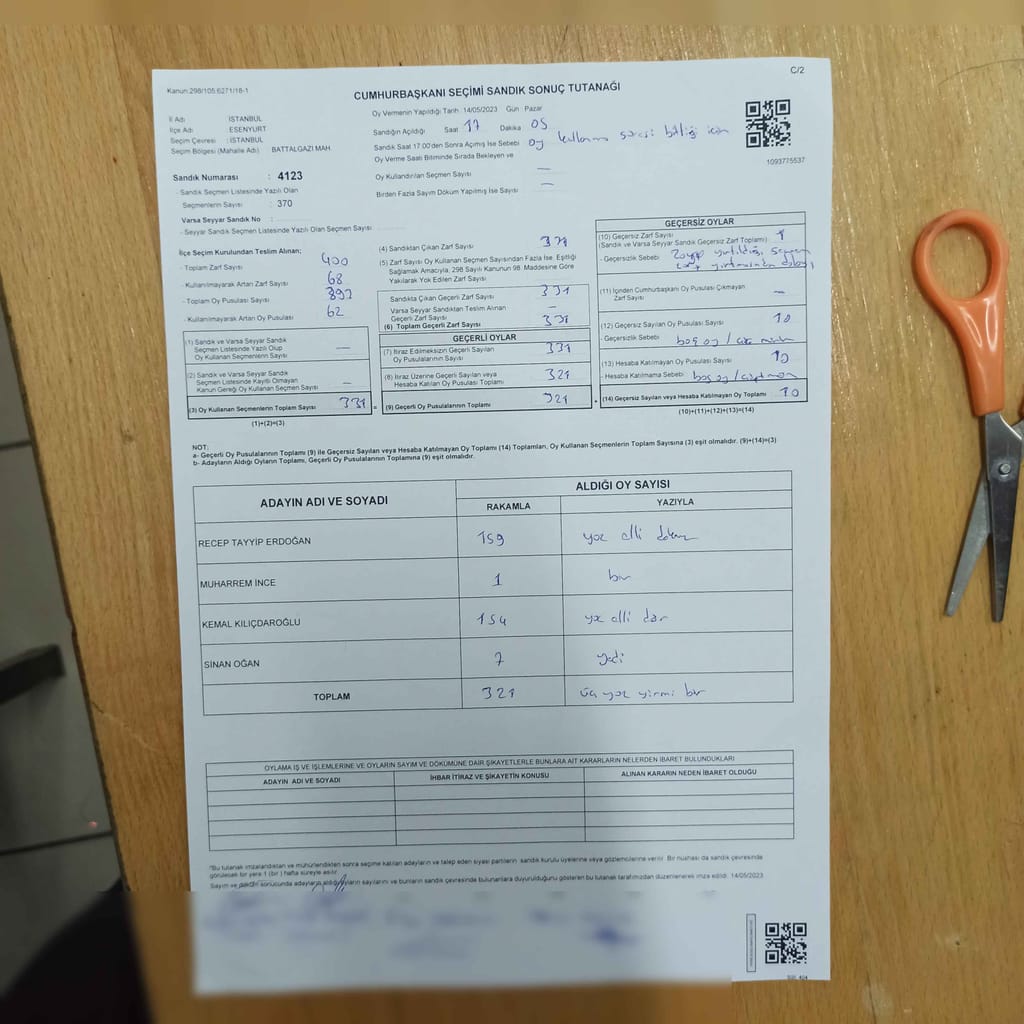 C/2
Kanun:298/105.6271/18-1
CUMHURBAŞKANI SEÇİMİ SANDIK SONUÇ TUTANAĞI
İl Adı : İSTANBUL
İlçe Adı : ESENYURT
Seçim Çevresi : İSTANBUL
Seçim Bölgesi (Mahalle Adı) BATTALGAZI MAH.
Oy Vermenin Yapıldığı Tarih: 14/05/2023 Gün Pazar
Sandığın Açıldığı Saat 17 Dakika 05
Sandık Saat 17:00'den Sonra Açılmış İse Sebebi oy kullanma süresi bittiği için
Oy Verme Saati Bitiminde Sırada Bekleyen ve
Oy Kullandırılan Seçmen Sayısı —
Birden Fazla Sayım Döküm Yapılmış İse Sayısı —
1093775537
Sandık Numarası : 4123
- Sandık Seçmen Listesinde Yazılı Olan
Seçmenlerin Sayısı : 370
Varsa Seyyar Sandık No :
- Seyyar Sandık Seçmen Listesinde Yazılı Olan Seçmen Sayısı:
İlçe Seçim Kurulundan Teslim Alınan;
- Toplam Zarf Sayısı 400
- Kullanılmayarak Artan Zarf Sayısı 68
- Toplam Oy Pusulası Sayısı
- Kullanılmayarak Artan Oy Pusulası 62
(1) Sandık ve Varsa Seyyar Sandık
Seçmen Listesinde Yazılı Olup
Oy Kullanan Seçmenlerin Sayısı —
(2) Sandık ve Varsa Seyyar Sandık
Seçmen Listesinde Kayıtlı Olmayan
Kanun Gereği Oy Kullanan Seçmen Sayısı —
(3) Oy Kullanan Seçmenlerin Toplam Sayısı 331 =
(1)+(2)=(3)
(4) Sandıktan Çıkan Zarf Sayısı
(5) Zarf Sayısı Oy Kullanan Seçmen Sayısından Fazla İse, Eşitliği
Sağlamak Amacıyla, 298 Sayılı Kanunun 98. Maddesine Göre
Yakılarak Yok Edilen Zarf Sayısı
Sandıkta Çıkan Geçerli Zarf Sayısı 331
Varsa Seyyar Sandıktan Teslim Alınan
Geçerli Zarf Sayısı —
(6) Toplam Geçerli Zarf Sayısı 331
GEÇERLİ OYLAR
(7) İtiraz Edilmeksizin Geçerli Sayılan
Oy Pusulalarının Sayısı 331
(8) İtiraz Üzerine Geçerli Sayılan veya
Hesaba Katılan Oy Pusulası Toplamı 321
(9) Geçerli Oy Pusulalarının Toplamı 321 +
GEÇERSİZ OYLAR
(10) Geçersiz Zarf Sayısı
(Sandık ve Varsa Seyyar Sandık Geçersiz Zarf Toplamı) 1
- Geçersizlik Sebebi
(11) İçinden Cumhurbaşkanı Oy Pusulası Çıkmayan
Zarf Sayısı —
(12) Geçersiz Sayılan Oy Pusulası Sayısı 10
- Geçersizlik Sebebi boş oy /
(13) Hesaba Katılmayan Oy Pusulası Sayısı 10
- Hesaba Katılmama Sebebi boş oy /
(14) Geçersiz Sayılan veya Hesaba Katılmayan Oy Toplamı 10
(10)+(11)+(12)+(13)=(14)
NOT:
a- Geçerli Oy Pusulalarının Toplamı (9) ile Geçersiz Sayılan veya Hesaba Katılmayan Oy Toplamı (14) Toplamları, Oy Kullanan Seçmenlerin Toplam Sayısına (3) eşit olmalıdır. (9)+(14)=(3)
b- Adayların Aldığı Oyların Toplamı, Geçerli Oy Pusulalarının Toplamına (9) eşit olmalıdır.
ADAYIN ADI VE SOYADI ALDIĞI OY SAYISI
RAKAMLA YAZIYLA
RECEP TAYYİP ERDOĞAN 159 yüz elli dokuz
MUHARREM İNCE 1 bir
KEMAL KILIÇDAROĞLU 154 yüz elli dör
SİNAN OĞAN 7 yedi
TOPLAM 321 üç yüz yirmi bir
OYLAMA İŞ VE İŞLEMLERİNE VE OYLARIN SAYIM VE DÖKÜMÜNE DAİR ŞİKAYETLERLE BUNLARA AİT KARARLARIN NELERDEN İBARET BULUNDUKLARI
ADAYIN ADI VE SOYADI İHBAR İTİRAZ VE ŞİKAYETİN KONUSU ALINAN KARARIN NEDEN İBARET OLDUĞU
"Bu tutanak imzalandıktan ve mühürlendikten sonra seçime katılan adayların ve talep eden siyasi partilerin sandık kurulu üyelerine veya gözlemcilerine verilir. Bir nüshası da sandık çevresinde
görülecek bir yere 1 (bir) hafta süreyle asılır.
Sayım ve döküm sonucunda adayların aldığı oyların sayılarını ve bunların sandık çevresinde bulunanlara duyurulduğunu gösteren bu tutanak tarafımızdan düzenlenerek imza edildi. 14/05/2023